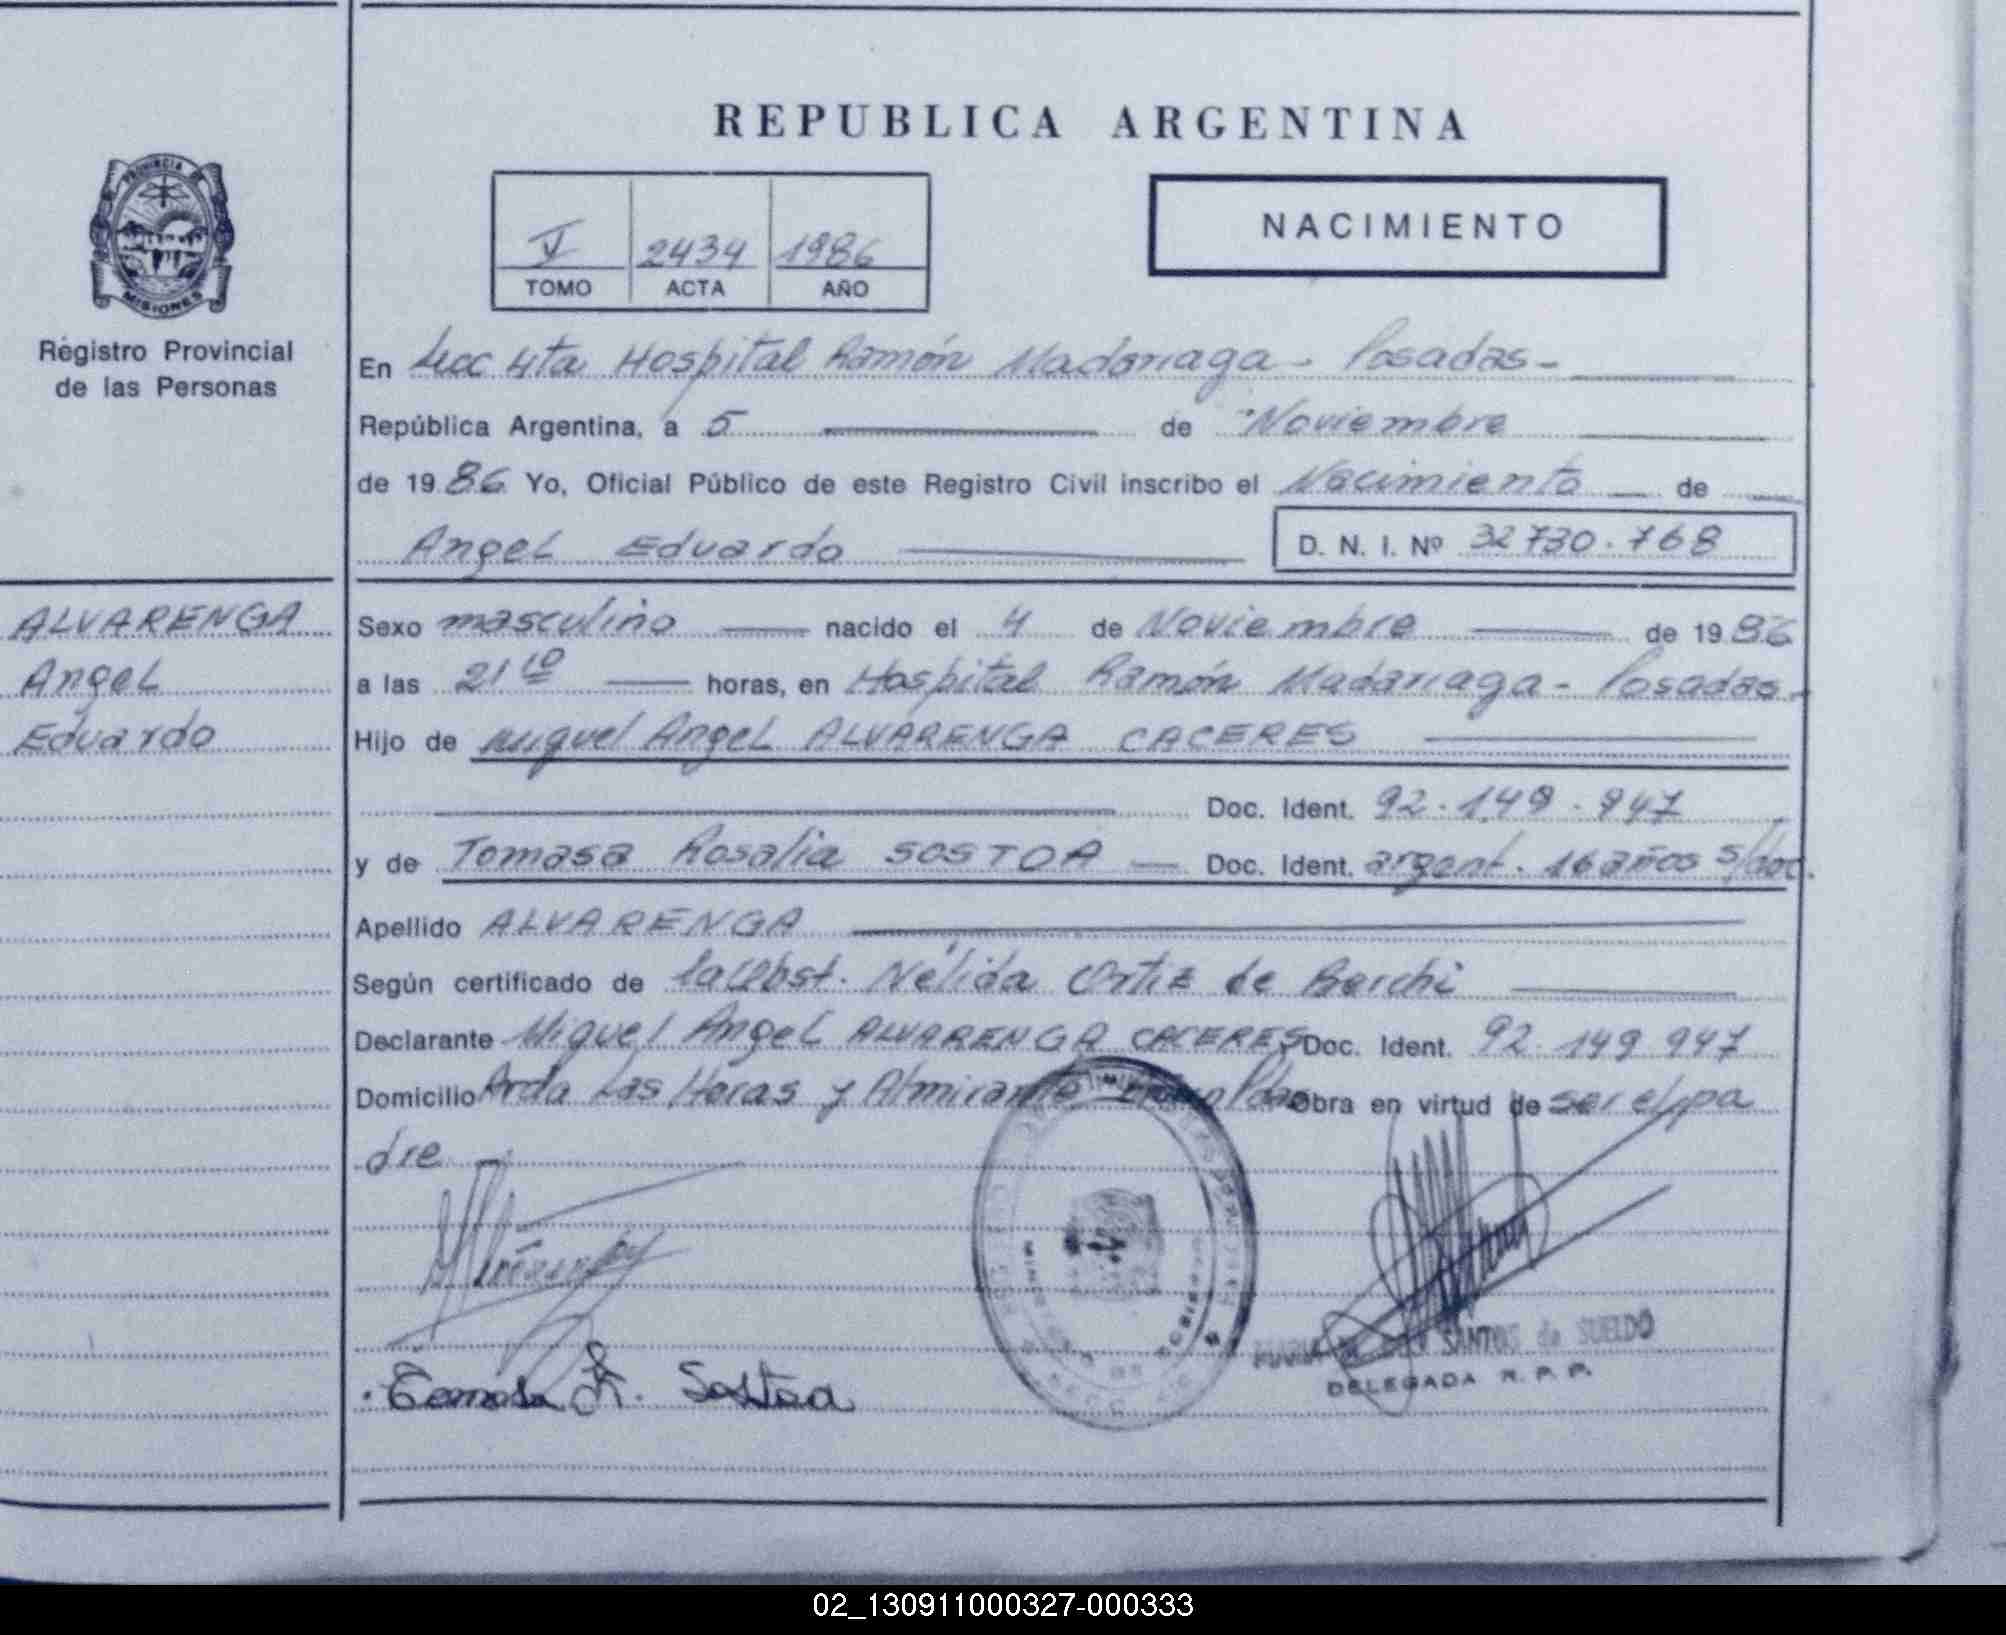 REPUBLICA ARGENTINA
PROVINCIA DE
MISIONES
Registro Provincial
de las Personas
V 2434 1986
TOMO ACTA AÑO
NACIMIENTO
En Secc 4ta Hospital Ramón Madariaga - Posadas -
República Argentina, a 5 de Noviembre
de 1986 Yo, Oficial Público de este Registro Civil inscribo el Nacimiento de
Angel Eduardo D. N. I. Nº 32730.768
ALVARENGA
Angel
Eduardo
Sexo masculino nacido el 4 de Noviembre de 1986
a las 21 10 horas, en Hospital Ramón Madariaga - Posadas -
Hijo de Miguel Angel ALVARENGA CACERES
Doc. Ident. 92.149.947
y de Tomasa Rosalia SOSTOA Doc. Ident. argent. 16 años s/doc.
Apellido ALVARENGA
Según certificado de la Obst. Nélida Ortiz de Berchi
Declarante Miguel Angel ALVARENGA CACERES Doc. Ident. 92.149 947
Domicilio Avda Las Heras y Almirante Pdas Obra en virtud de ser el pa
dre
Tomasa R. Sostoa
SANTOS de SUELDO
DELEGADA R. P. P.
02_130911000327-000333